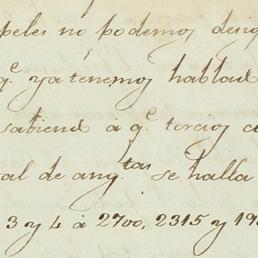 peles no podemos desig
q.e ya tenemos hablad
sabiend à q.e tercios c
al de ang.tas se halla
3 y 4 à 2700, 2315 y 19